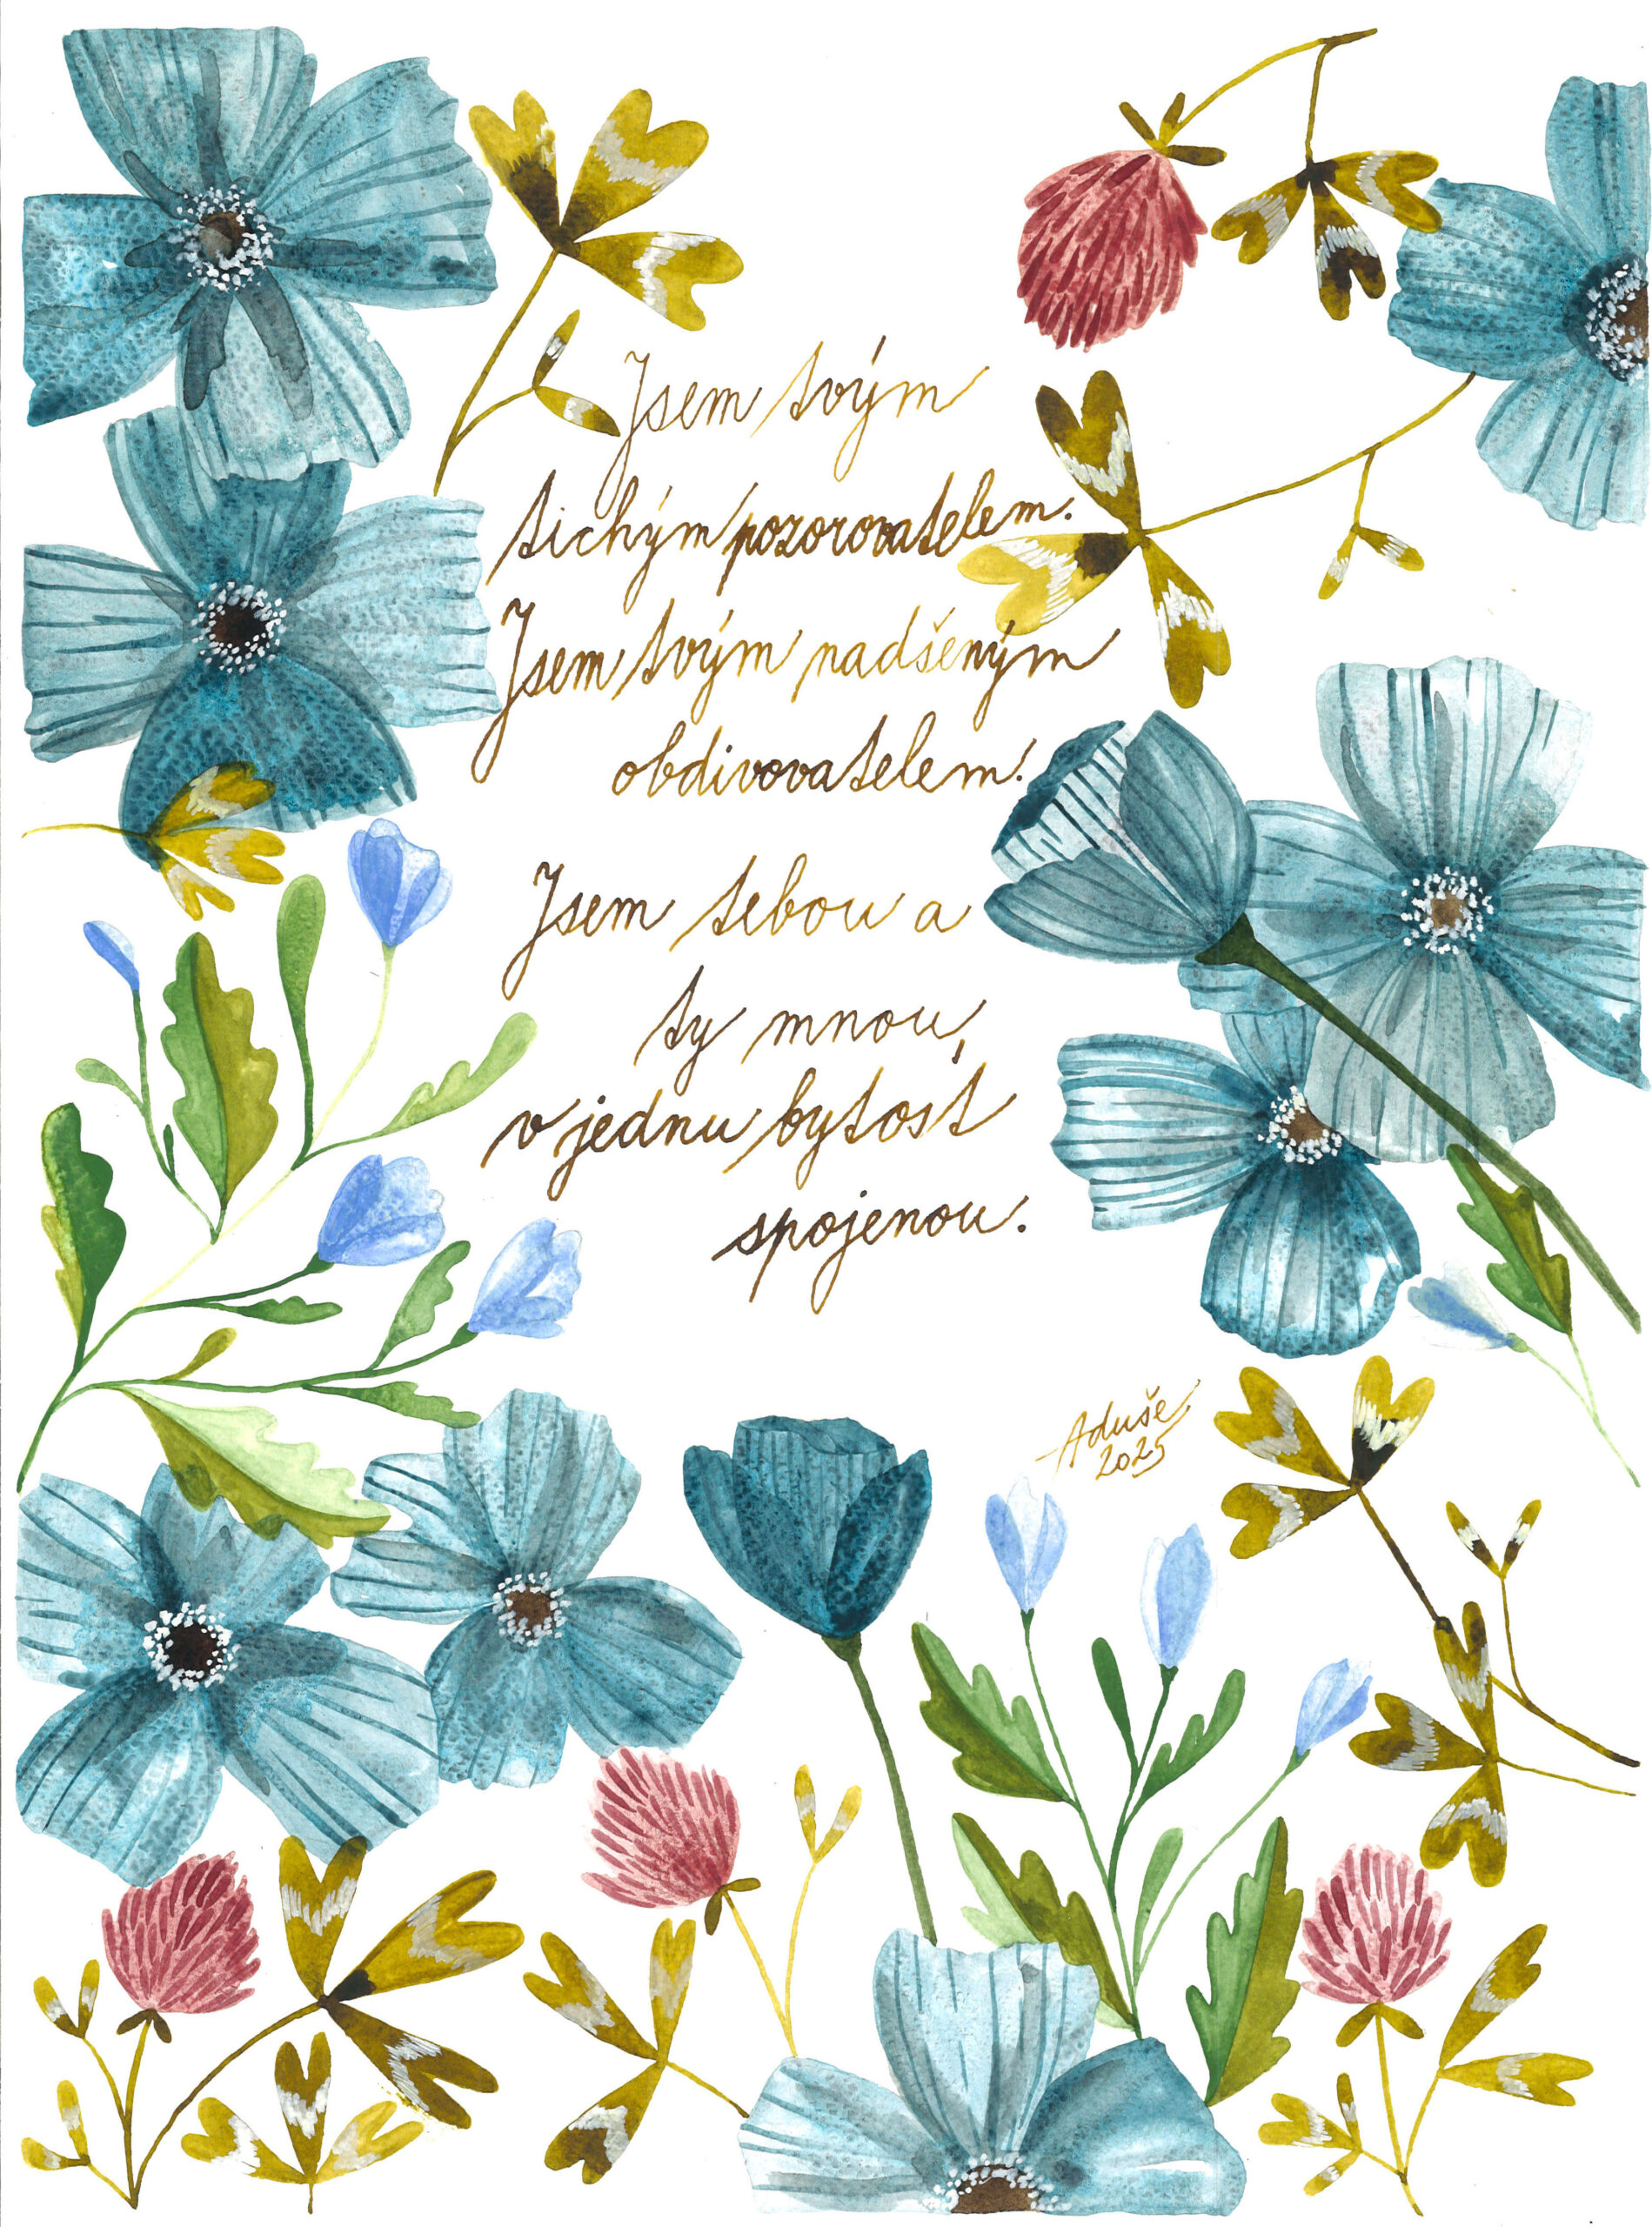 Jsem tvým
tichým pozorovatelem.
Jsem tvým nadšeným
obdivovatelem.
Jsem tebou a
ty mnou,
v jednu bytost
spojenou.
Aduše
2025